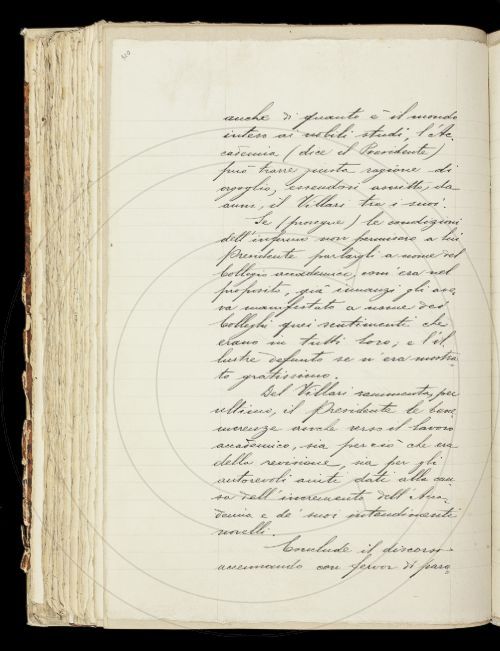 anche di quanto è il mondo
inteso ai nobili studi, l'Ac-
cademia (dice il Presidente)
può trarre giusta ragione di
orgoglio, essendosi ascritto, da
anni, il Villari tra i suoi.
Se (prosegue) le condizioni
dell'infermo non permisero a lui
Presidente parlargli a nome del
Collegio accademico, com'era nel
proposito, già innanzi gli ave-
va manifestato a nome dei
Colleghi quei sentimenti che
erano in tutti loro; e l'il-
lustre defunto se n'era mostra-
to gratissimo.
Del Villari rammenta, per
ultimo, il Presidente le bene-
merenze anche verso il lavoro
accademico, sia per ciò che era
della revisione, sia per gli
autorevoli aiuti dati alla cau-
sa dell'incremento dell'Acca-
demia e de' suoi intendimenti
novelli.
Conclude il discorso
accennando con fervor di paro-